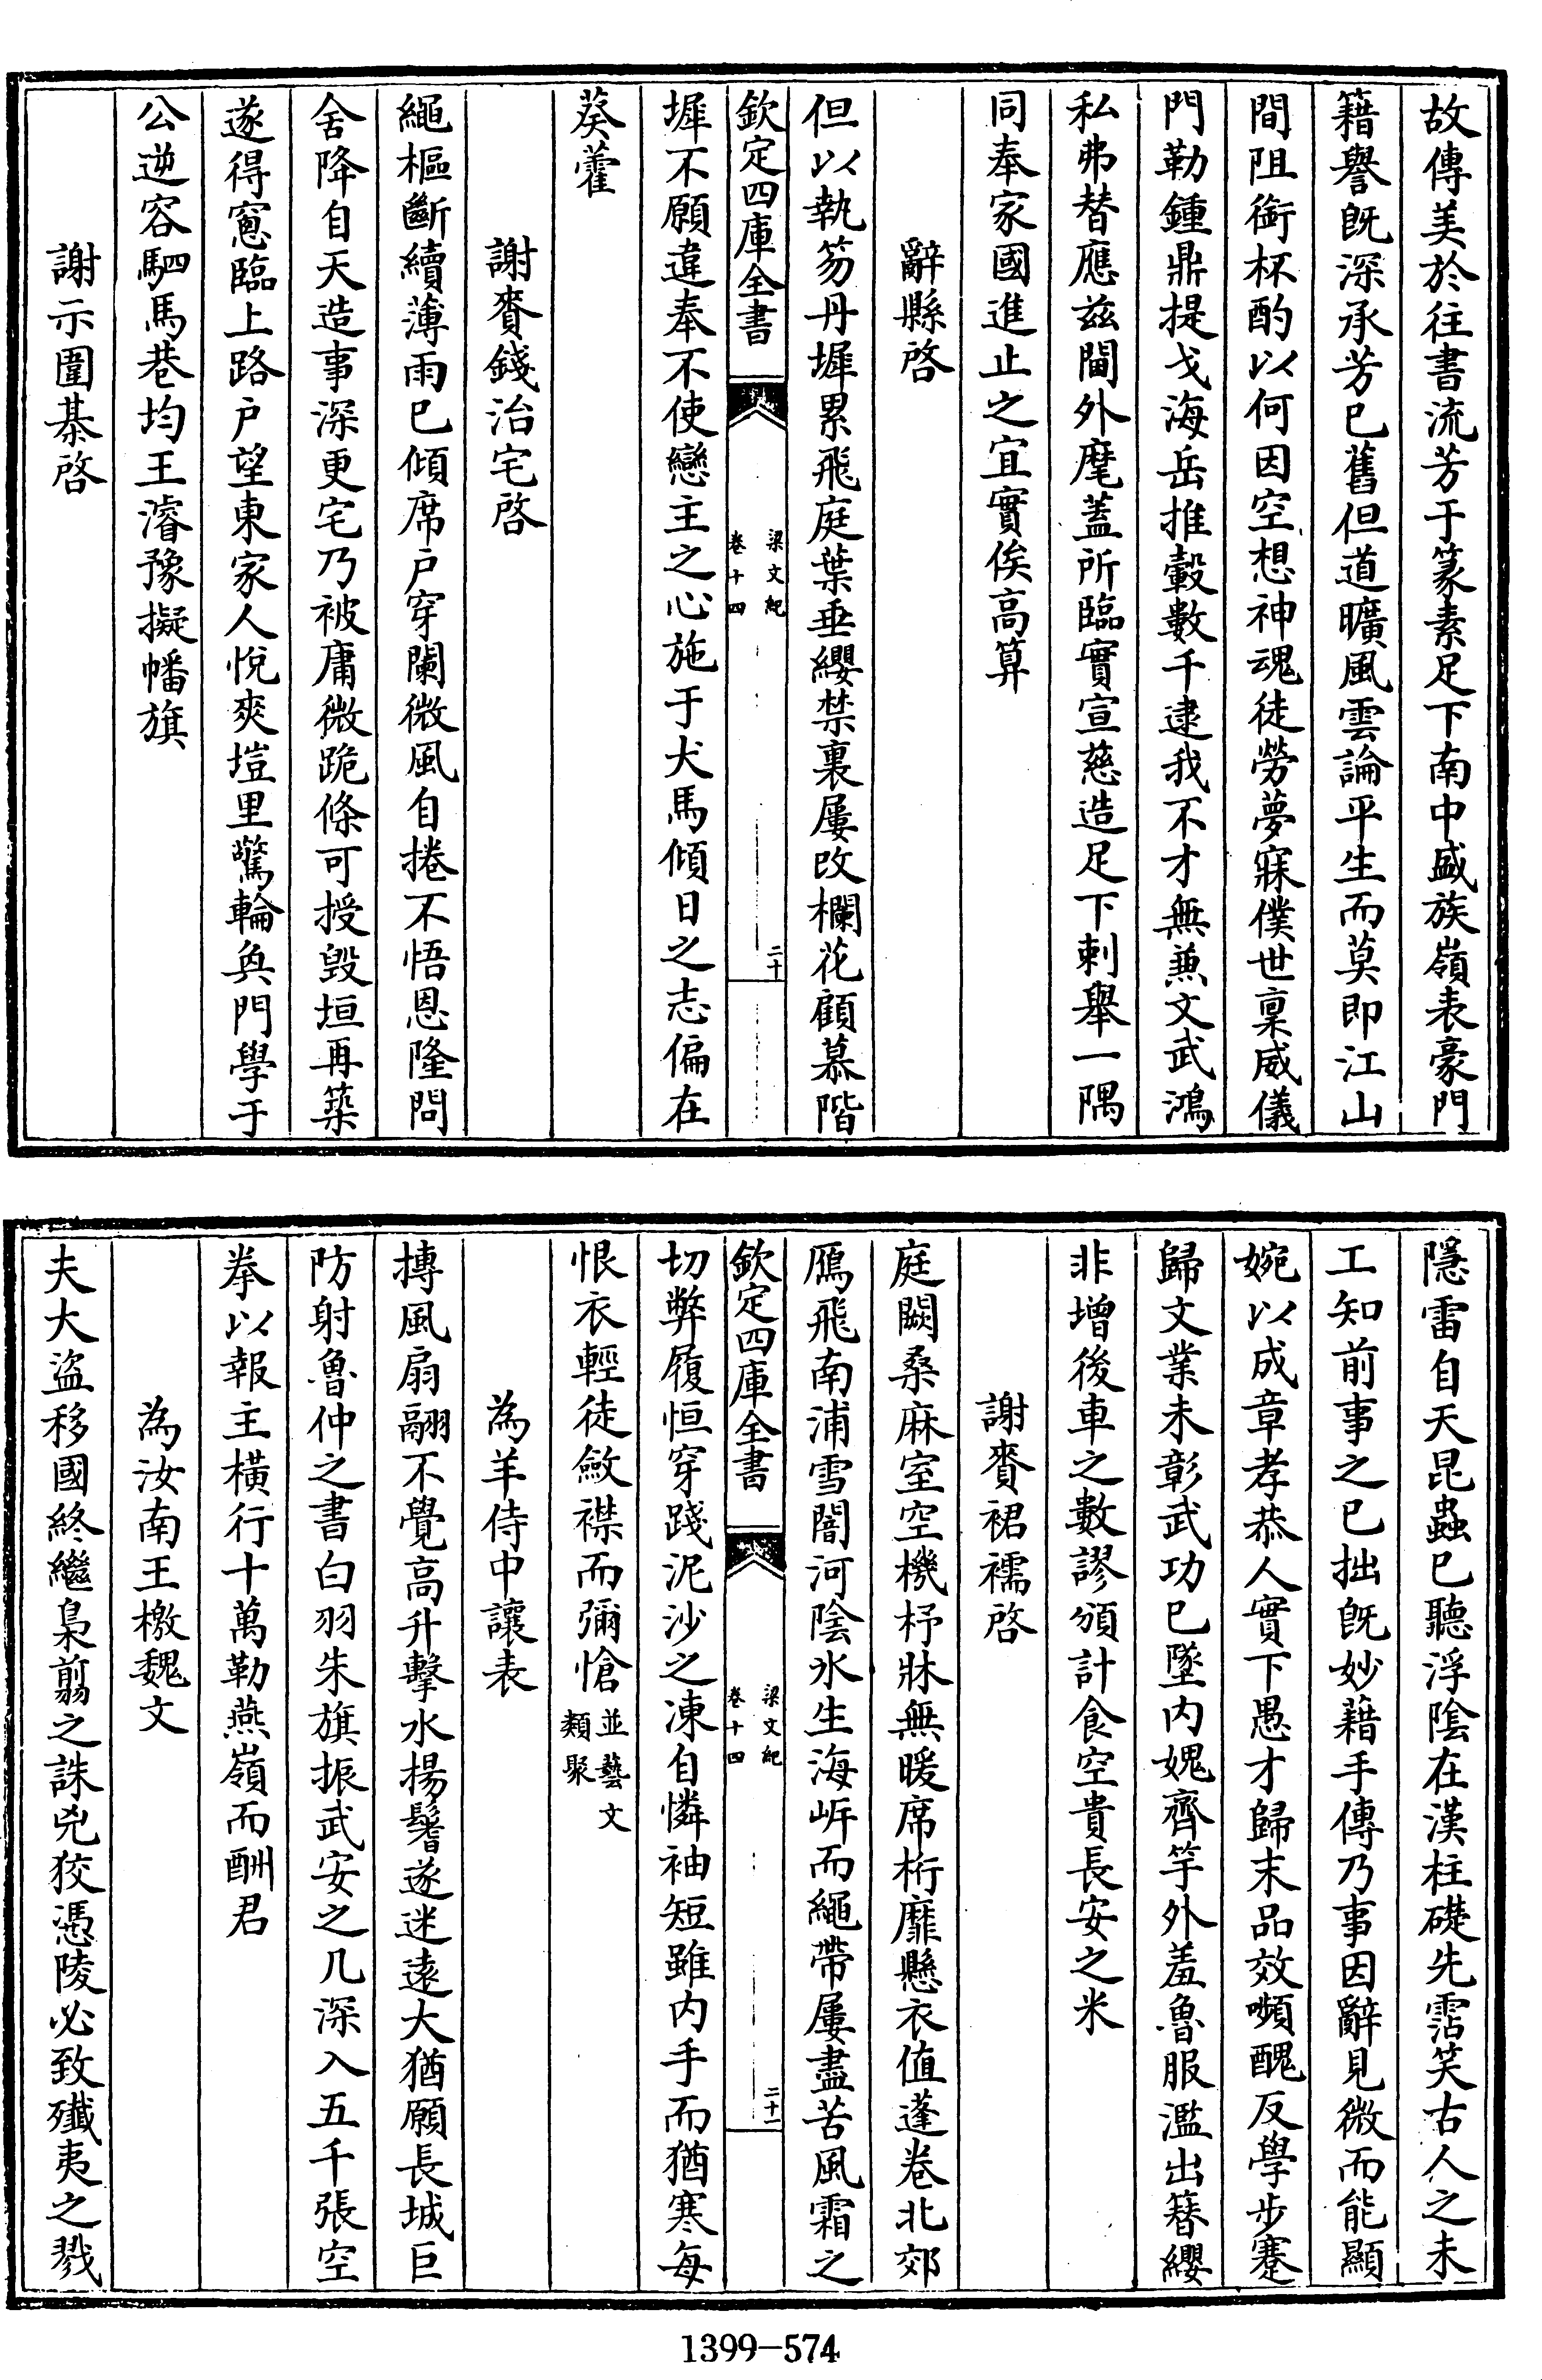 故傳美於往書流芳于篆素足下南中盛族嶺表豪門
籍譽既深承芳已舊但道曠風雲論平生而莫即江山
間阻銜杯酌以何因空想神魂徒勞夢寐僕世稟威儀
門勒鍾鼎提戈海岳推轂數千逮我不才無兼文武鴻
私弗替應兹閫外麾蓋所臨實宣慈造足下刺舉一隅
同奉家國進止之宜實俟高算
辭縣啓
但以執笏丹墀累飛庭葉垂纓禁裏屢改欄花顧慕階
欽定四庫全書
梁文紀
卷十四
二十
墀不願違奉不使戀主之心施于犬馬傾日之志偏在
葵藿
謝賚錢治宅啓
繩樞斷續薄雨已傾席户穿闌微風自捲不悟恩隆問
舍降自天造事深更宅乃被庸微跪條可授毁垣再築
遂得窻臨上路户望東家人悅爽塏里驚輪奐門學于
公逆容駟馬巷均王濬豫擬幡旗
謝示圍棊啓
隱雷自天昆蟲已聽浮陰在漢柱礎先霑笑古人之未
工知前事之已拙既妙藉手傳乃事因辭見微而能顯
婉以成章孝恭人實下愚才歸末品效嚬醜反學步蹇
歸文業未彰武功已墜内媿齊竽外羞魯服濫出簪纓
非增後車之數謬頒計食空貴長安之米
謝賚裙襦啓
庭闕桑麻室空機杼牀無暖席桁靡懸衣值蓬卷北郊
鴈飛南浦雪闇河陰氷生海岸而繩帶屢盡苦風霜之
欽定四庫全書
梁文紀
卷十四
二十一
切弊履恒穿踐泥沙之凍自憐袖短雖内手而猶寒每
恨衣輕徒斂襟而彌愴並藝文類聚
為羊侍中讓表
摶風扇翮不覺高升擊水揚鬐遂迷遠大猶願長城巨
防射魯仲之書白羽朱旗振武安之几深入五千張空
拳以報主橫行十萬勒燕嶺而酬君
為汝南王檄魏文
夫大盜移國終繼梟翦之誅兇狡憑陵必致殲夷之戮
1399-574